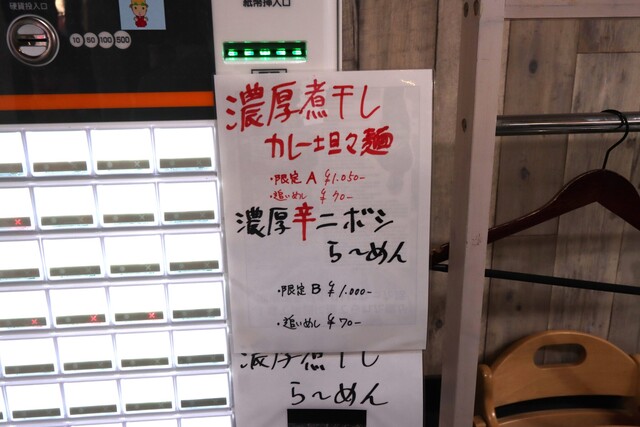 硬貨投入口
紙幣挿入口
10 50 100 500
濃厚煮干し
カレー坦々麺
・限定A ¥1,050-
・追いめし ¥70-
濃厚辛ニボシ
ら〜めん
・限定B ¥1,000-
・追いめし ¥70-
濃厚煮干し
ら〜めん